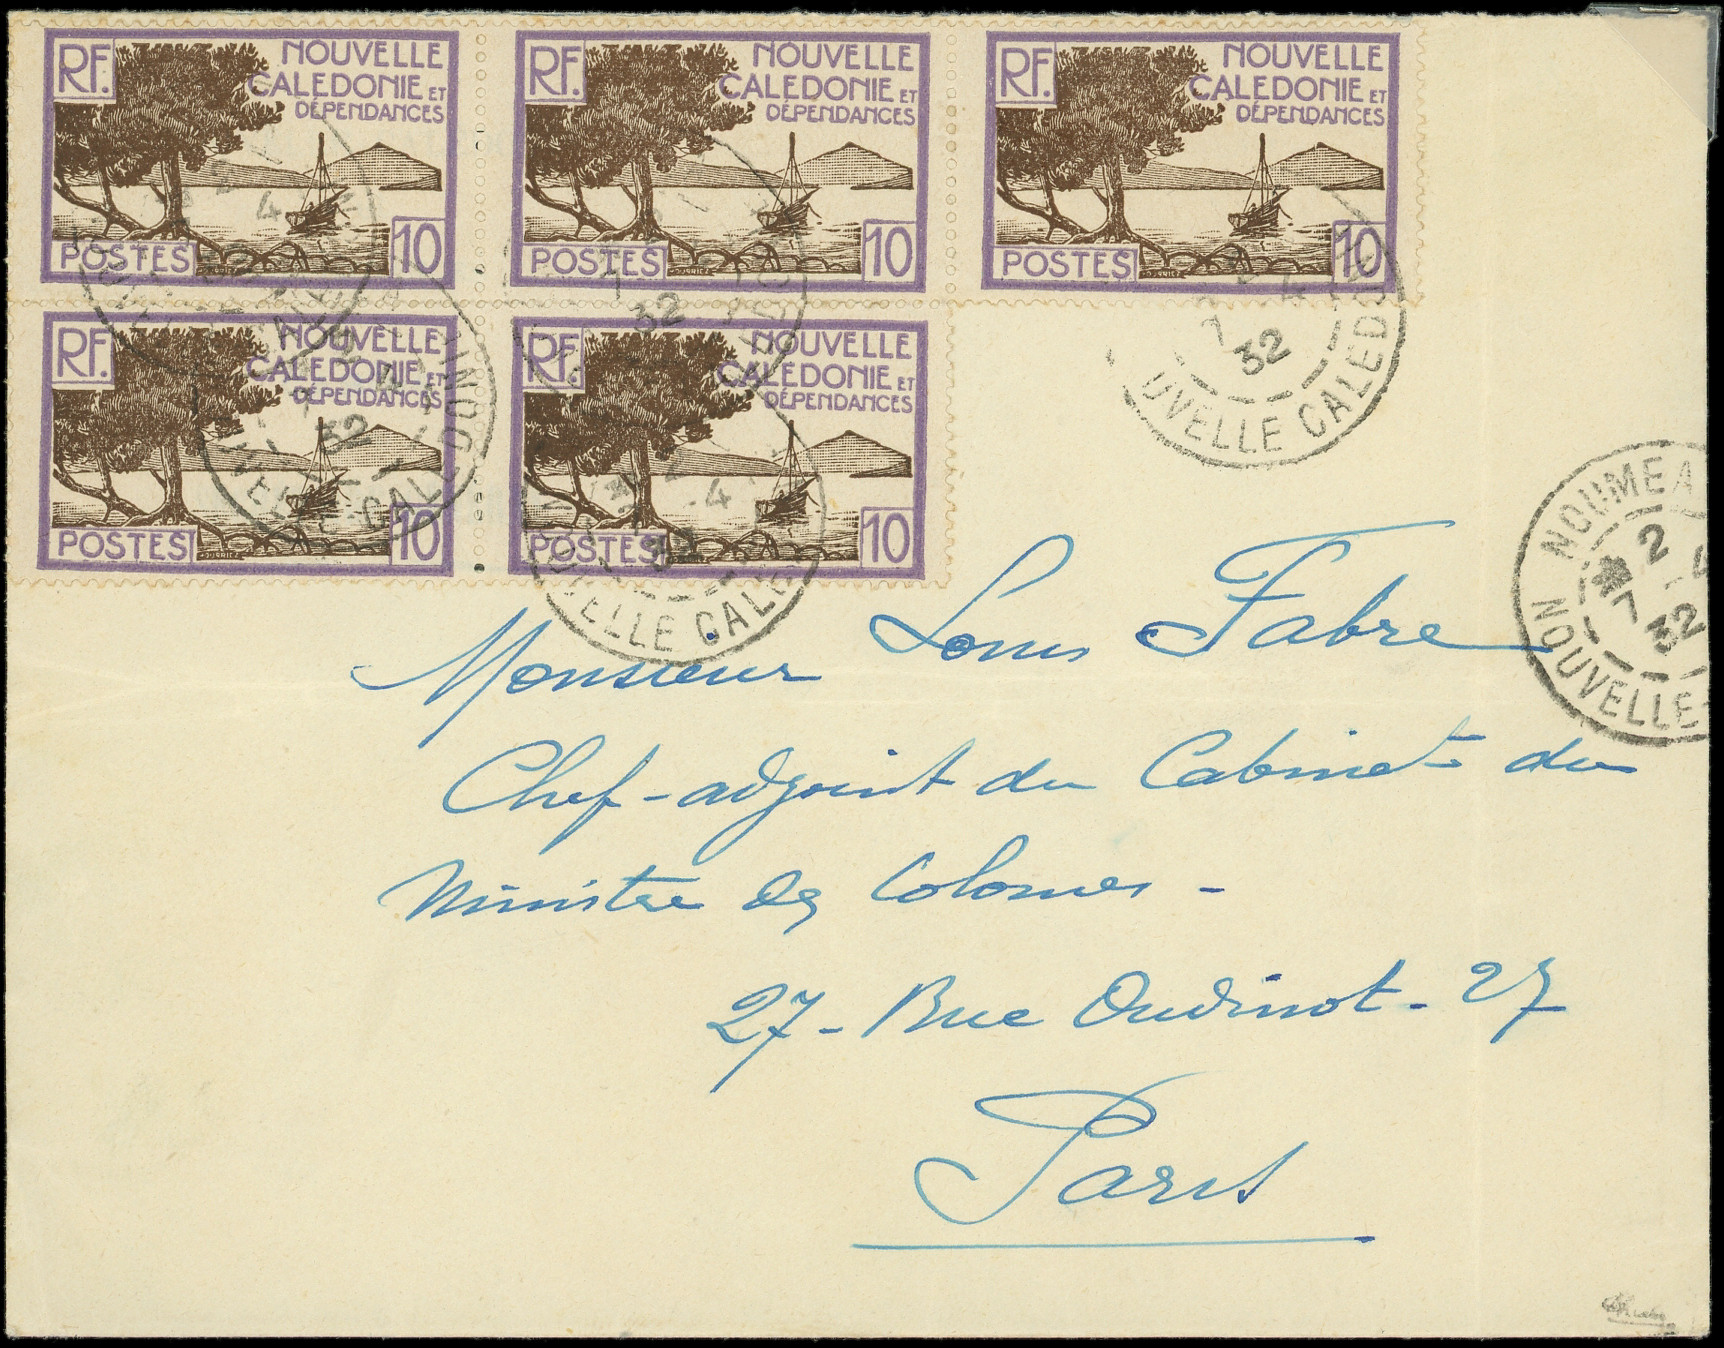 RF. NOUVELLE CALEDONIE ET DÉPENDANCES
POSTES 10
RF. NOUVELLE CALEDONIE ET DÉPENDANCES
POSTES 10
RF. NOUVELLE CALEDONIE ET DÉPENDANCES
POSTES 10
RF. NOUVELLE CALEDONIE ET DÉPENDANCES
POSTES 10
RF. NOUVELLE CALEDONIE ET DÉPENDANCES
POSTES 10
7 32
UVELLE CALEDO
NOUMEA
2 4
7 32
NOUVELLE-
Monsieur Louis Fabre
Chef-adjoint du Cabinet du
Ministre des Colonies -
27 - Rue Oudinot - 27
Paris